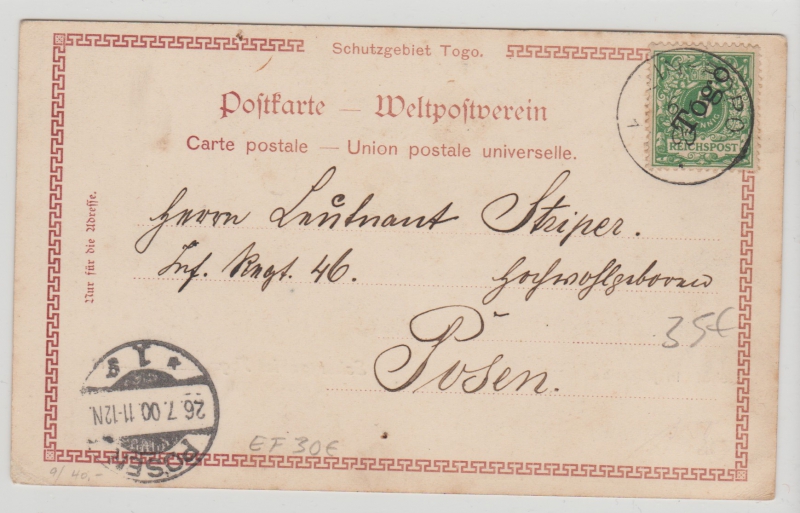 Schutzgebiet Togo.
Postkarte — Weltpostverein
Carte postale — Union postale universelle.
Togo
REICHSPOST
Nur für die Adresse.
Herrn Leutnant Striper.
Inf. Regt. 46. Hochwohlgeboren
Posen.
35€
* 1 g
26.7.00.11-12N.
POSEN
EF 30€
9/ 40,-